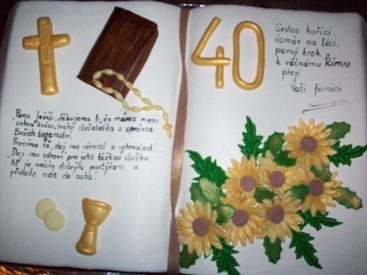 40
Srdce hořící,
úsměv na líci,
pevný krok
k věčnému Římu
přejí
Vaši farníci
Pane Ježíši, děkujeme Ti, že máme mezi
sebou kněze, Tvého služebníka a správce
Božích tajemství.
Prosíme Tě, dej mu věrnost a vytrvalost
Dej mu zdraví pro jeho těžkou službu.
Ať je naším dobrým pastýřem a
přivede nás do neba.